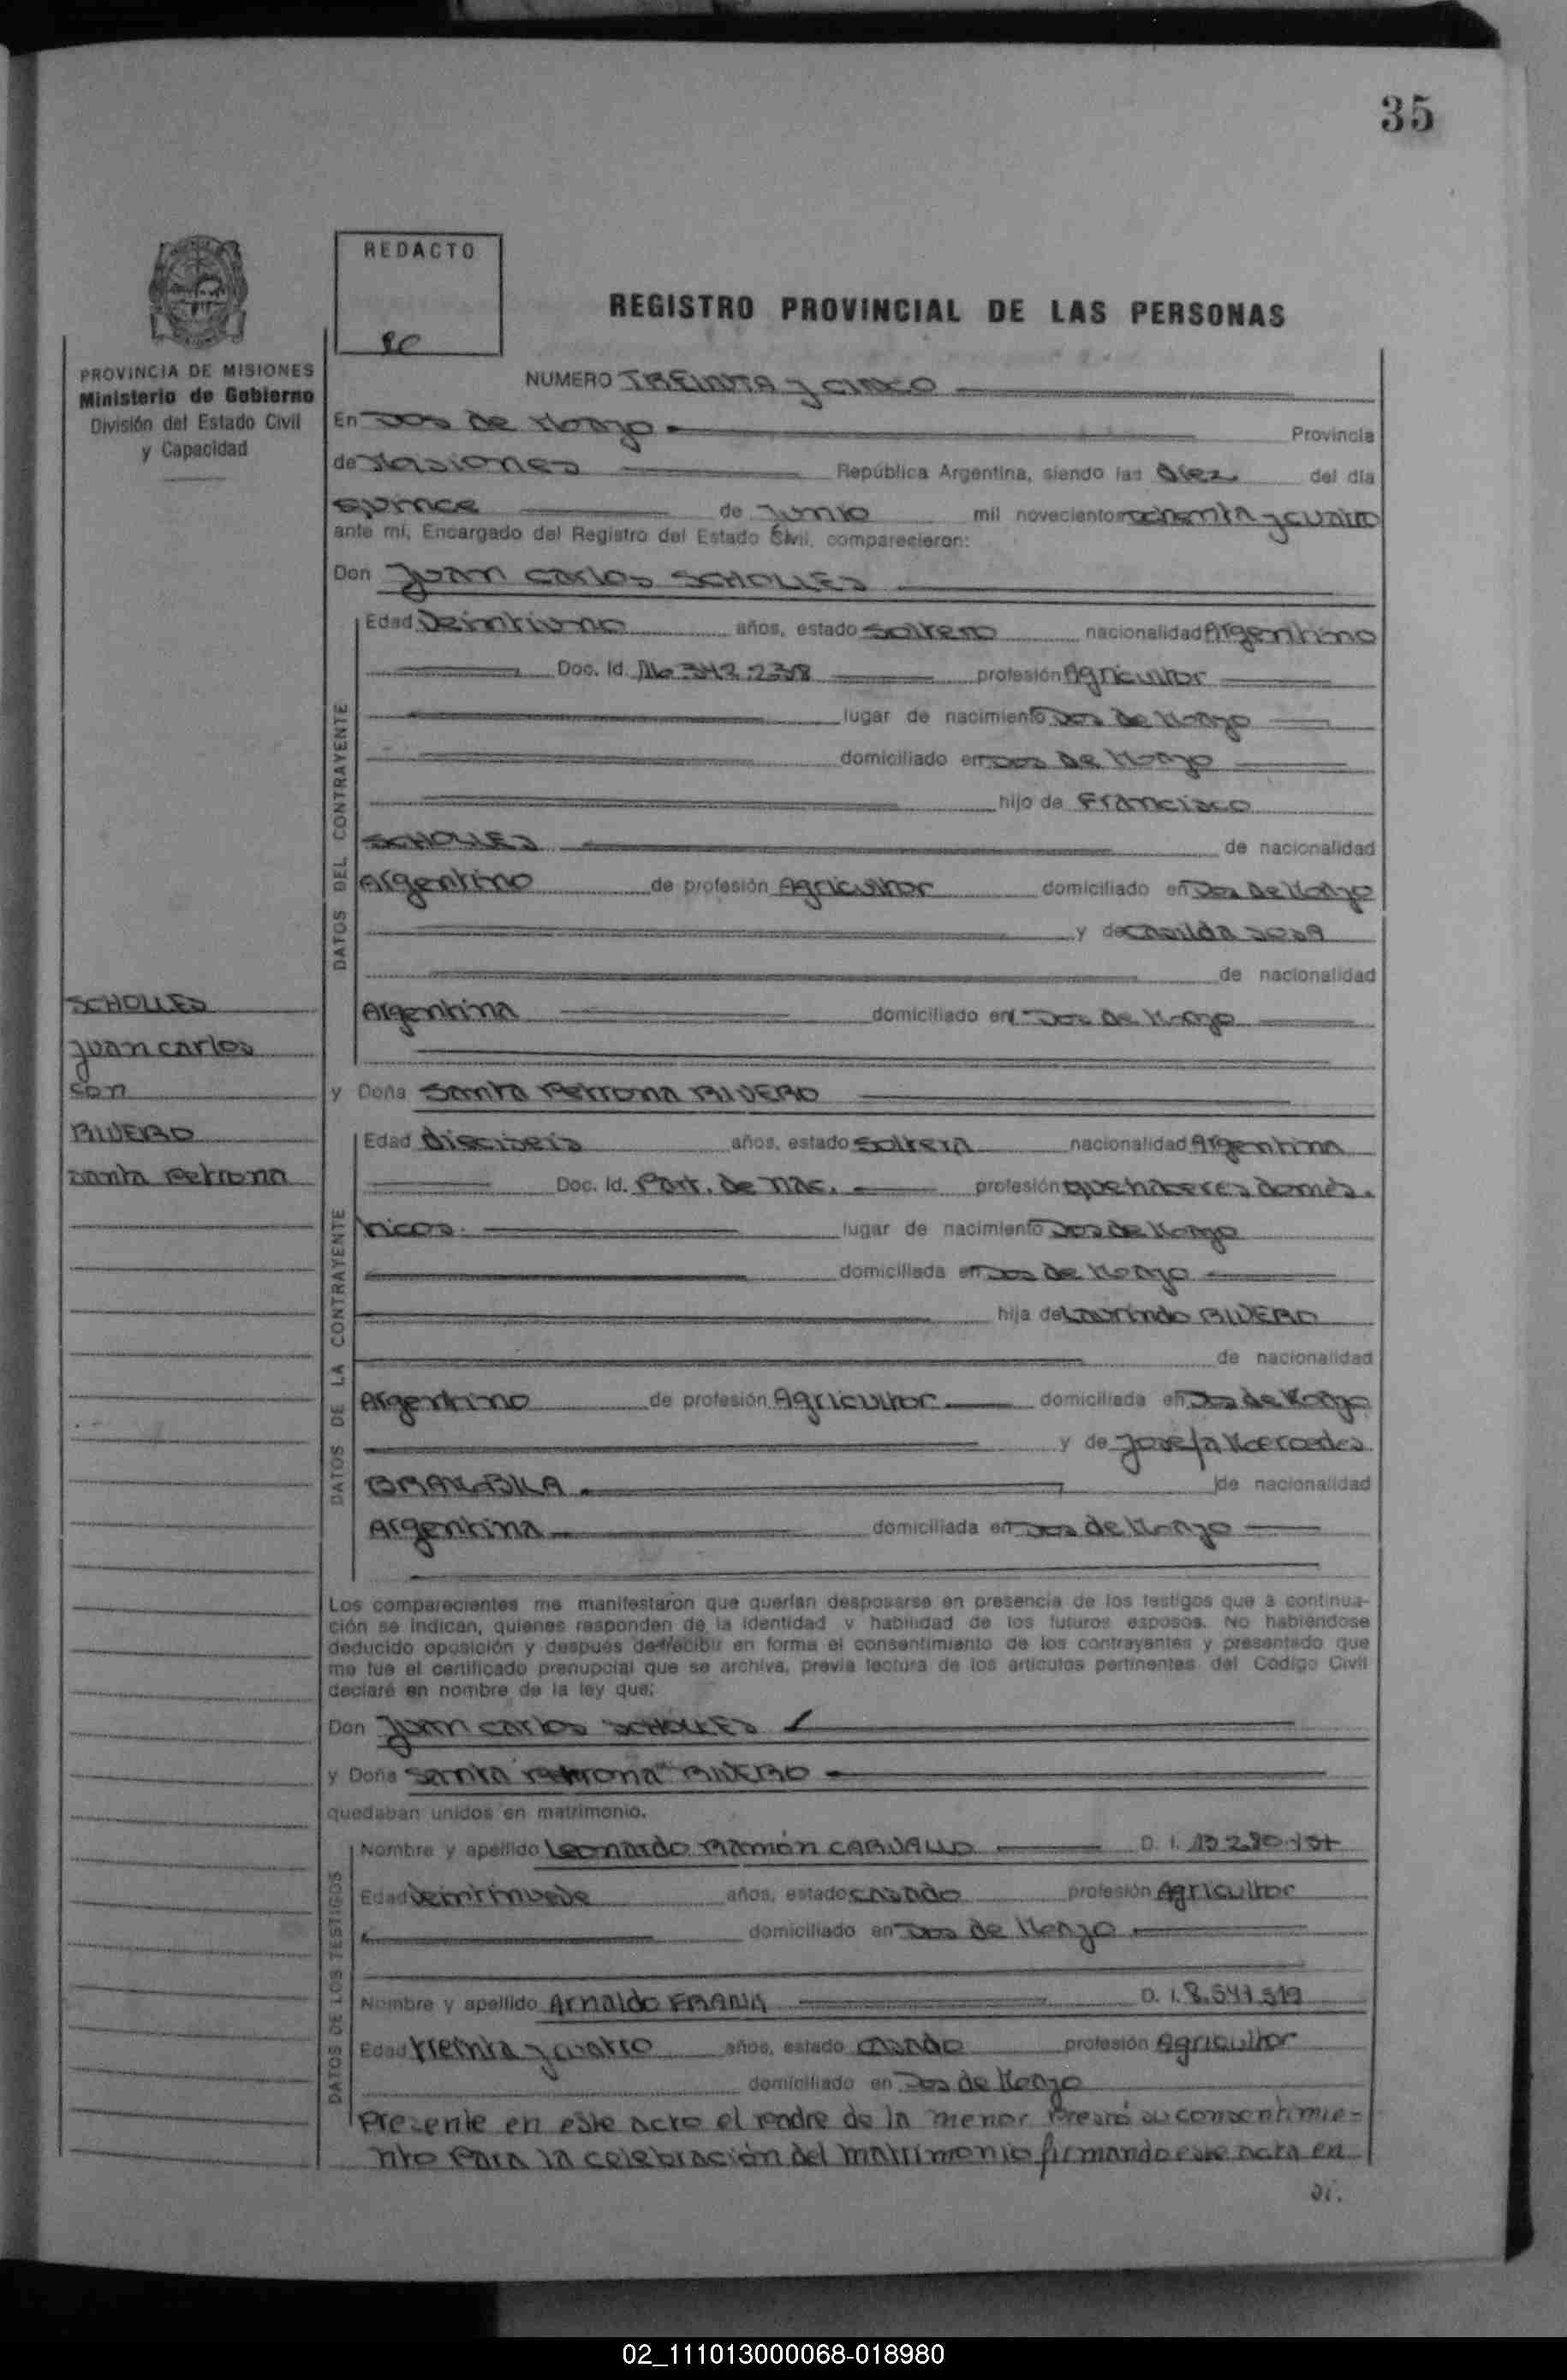 35
REDACTO
REGISTRO PROVINCIAL DE LAS PERSONAS
PROVINCIA DE MISIONES
Ministerio de Gobierno
División del Estado Civil
y Capacidad
NUMERO TREINTA y CINCO
En Dos De Mayo Provincia
de Misiones República Argentina, siendo las Diez del día
quince de Junio mil novecientos ochenta y cuatro
ante mí, Encargado del Registro del Estado Civil, comparecieron:
Don Juan Carlos SCHOLLES
DATOS DEL CONTRAYENTE
Edad Veintiuno años, estado soltero nacionalidad Argentino
Doc. Id. profesión Agricultor
lugar de nacimiento Dos De Mayo
domiciliado en Dos De Mayo
hijo de Francisco
SCHOLLES de nacionalidad
Argentino de profesión Agricultor domiciliado en Dos De Mayo
y de Casilda
de nacionalidad
Argentina domiciliado en Dos De Mayo
y Doña Santa Petrona RIVERO
SCHOLLES
Juan Carlos
con
RIVERO
Santa Petrona
DATOS DE LA CONTRAYENTE
Edad dieciseis años, estado Soltera nacionalidad Argentina
Doc. Id. Part. De nac. profesión quehaceres domés.
ticos. lugar de nacimiento Dos De Mayo
domiciliada en Dos De Mayo
hija de Laurindo RIVERO
de nacionalidad
Argentino de profesión Agricultor domiciliada en Dos de Mayo
y de Josefa Mercedes
de nacionalidad
Argentina domiciliada en Dos de Mayo
Los comparecientes me manifestaron que querían desposarse en presencia de los testigos que a continua-
ción se indican, quienes responden de la identidad y habilidad de los futuros esposos. No habiéndose
deducido oposición y después de recibir en forma el consentimiento de los contrayentes y presentado que
me fue el certificado prenupcial que se archiva, previa lectura de los artículos pertinentes del Código Civil
declaré en nombre de la ley que:
Don Juan Carlos SCHOLLES
y Doña Santa Petrona RIVERO
quedaban unidos en matrimonio.
DATOS DE LOS TESTIGOS
Nombre y apellido Leonardo Ramón CARVALLO D. I.
Edad Veintinueve años, estado casado profesión Agricultor
domiciliado en Dos de Mayo
Nombre y apellido Arnaldo D. I. 8.541.519
Edad treinta y cuatro años, estado casado profesión Agricultor
domiciliado en Dos de Mayo
Presente en este acto el padre de la menor Prestó su consentimie-
nto Para la celebración del matrimonio firmando este acta en
di.
02_111013000068-018980